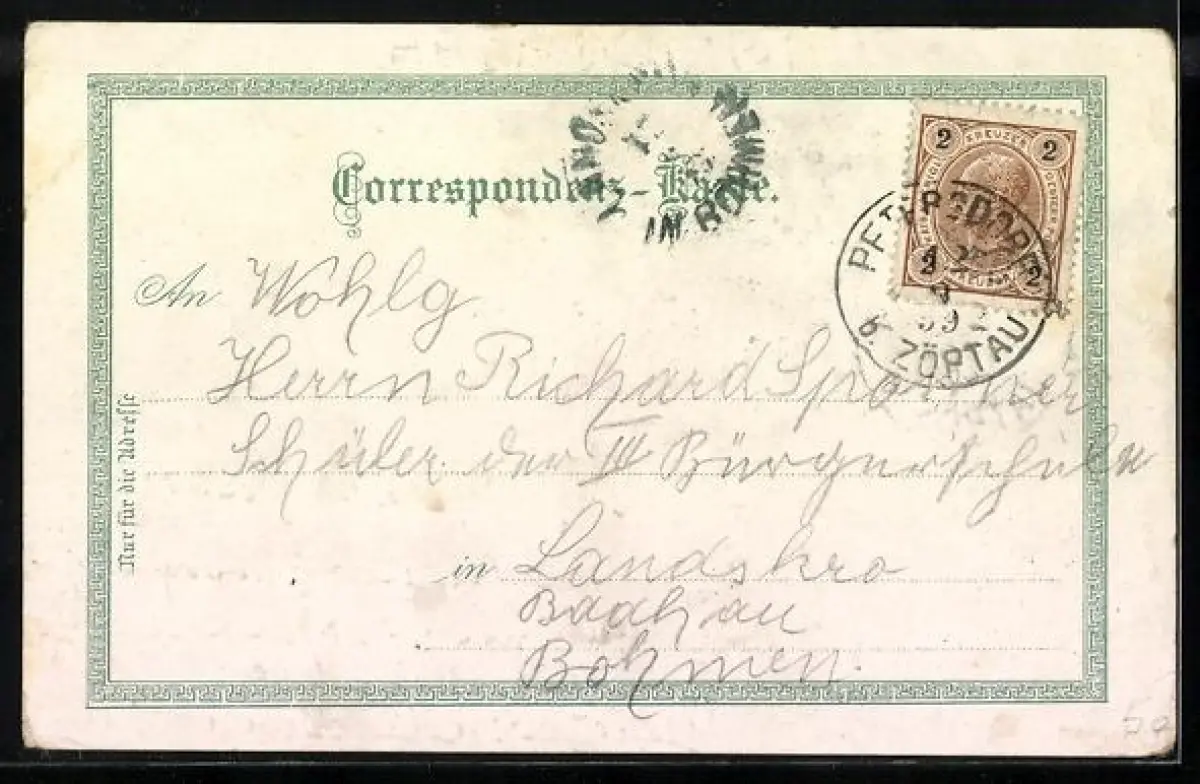 LANDSKRON IN BÖHMEN
Correspondenz-Karte.
2 KREUZER 2
2 KREUZER 2
PETERSDORF
99
b. ZÖPTAU
An Wohlg
Herrn Richard
Schüler der III Bürgerschule
in Landskro
Böhmen.
Nur für die Adresse